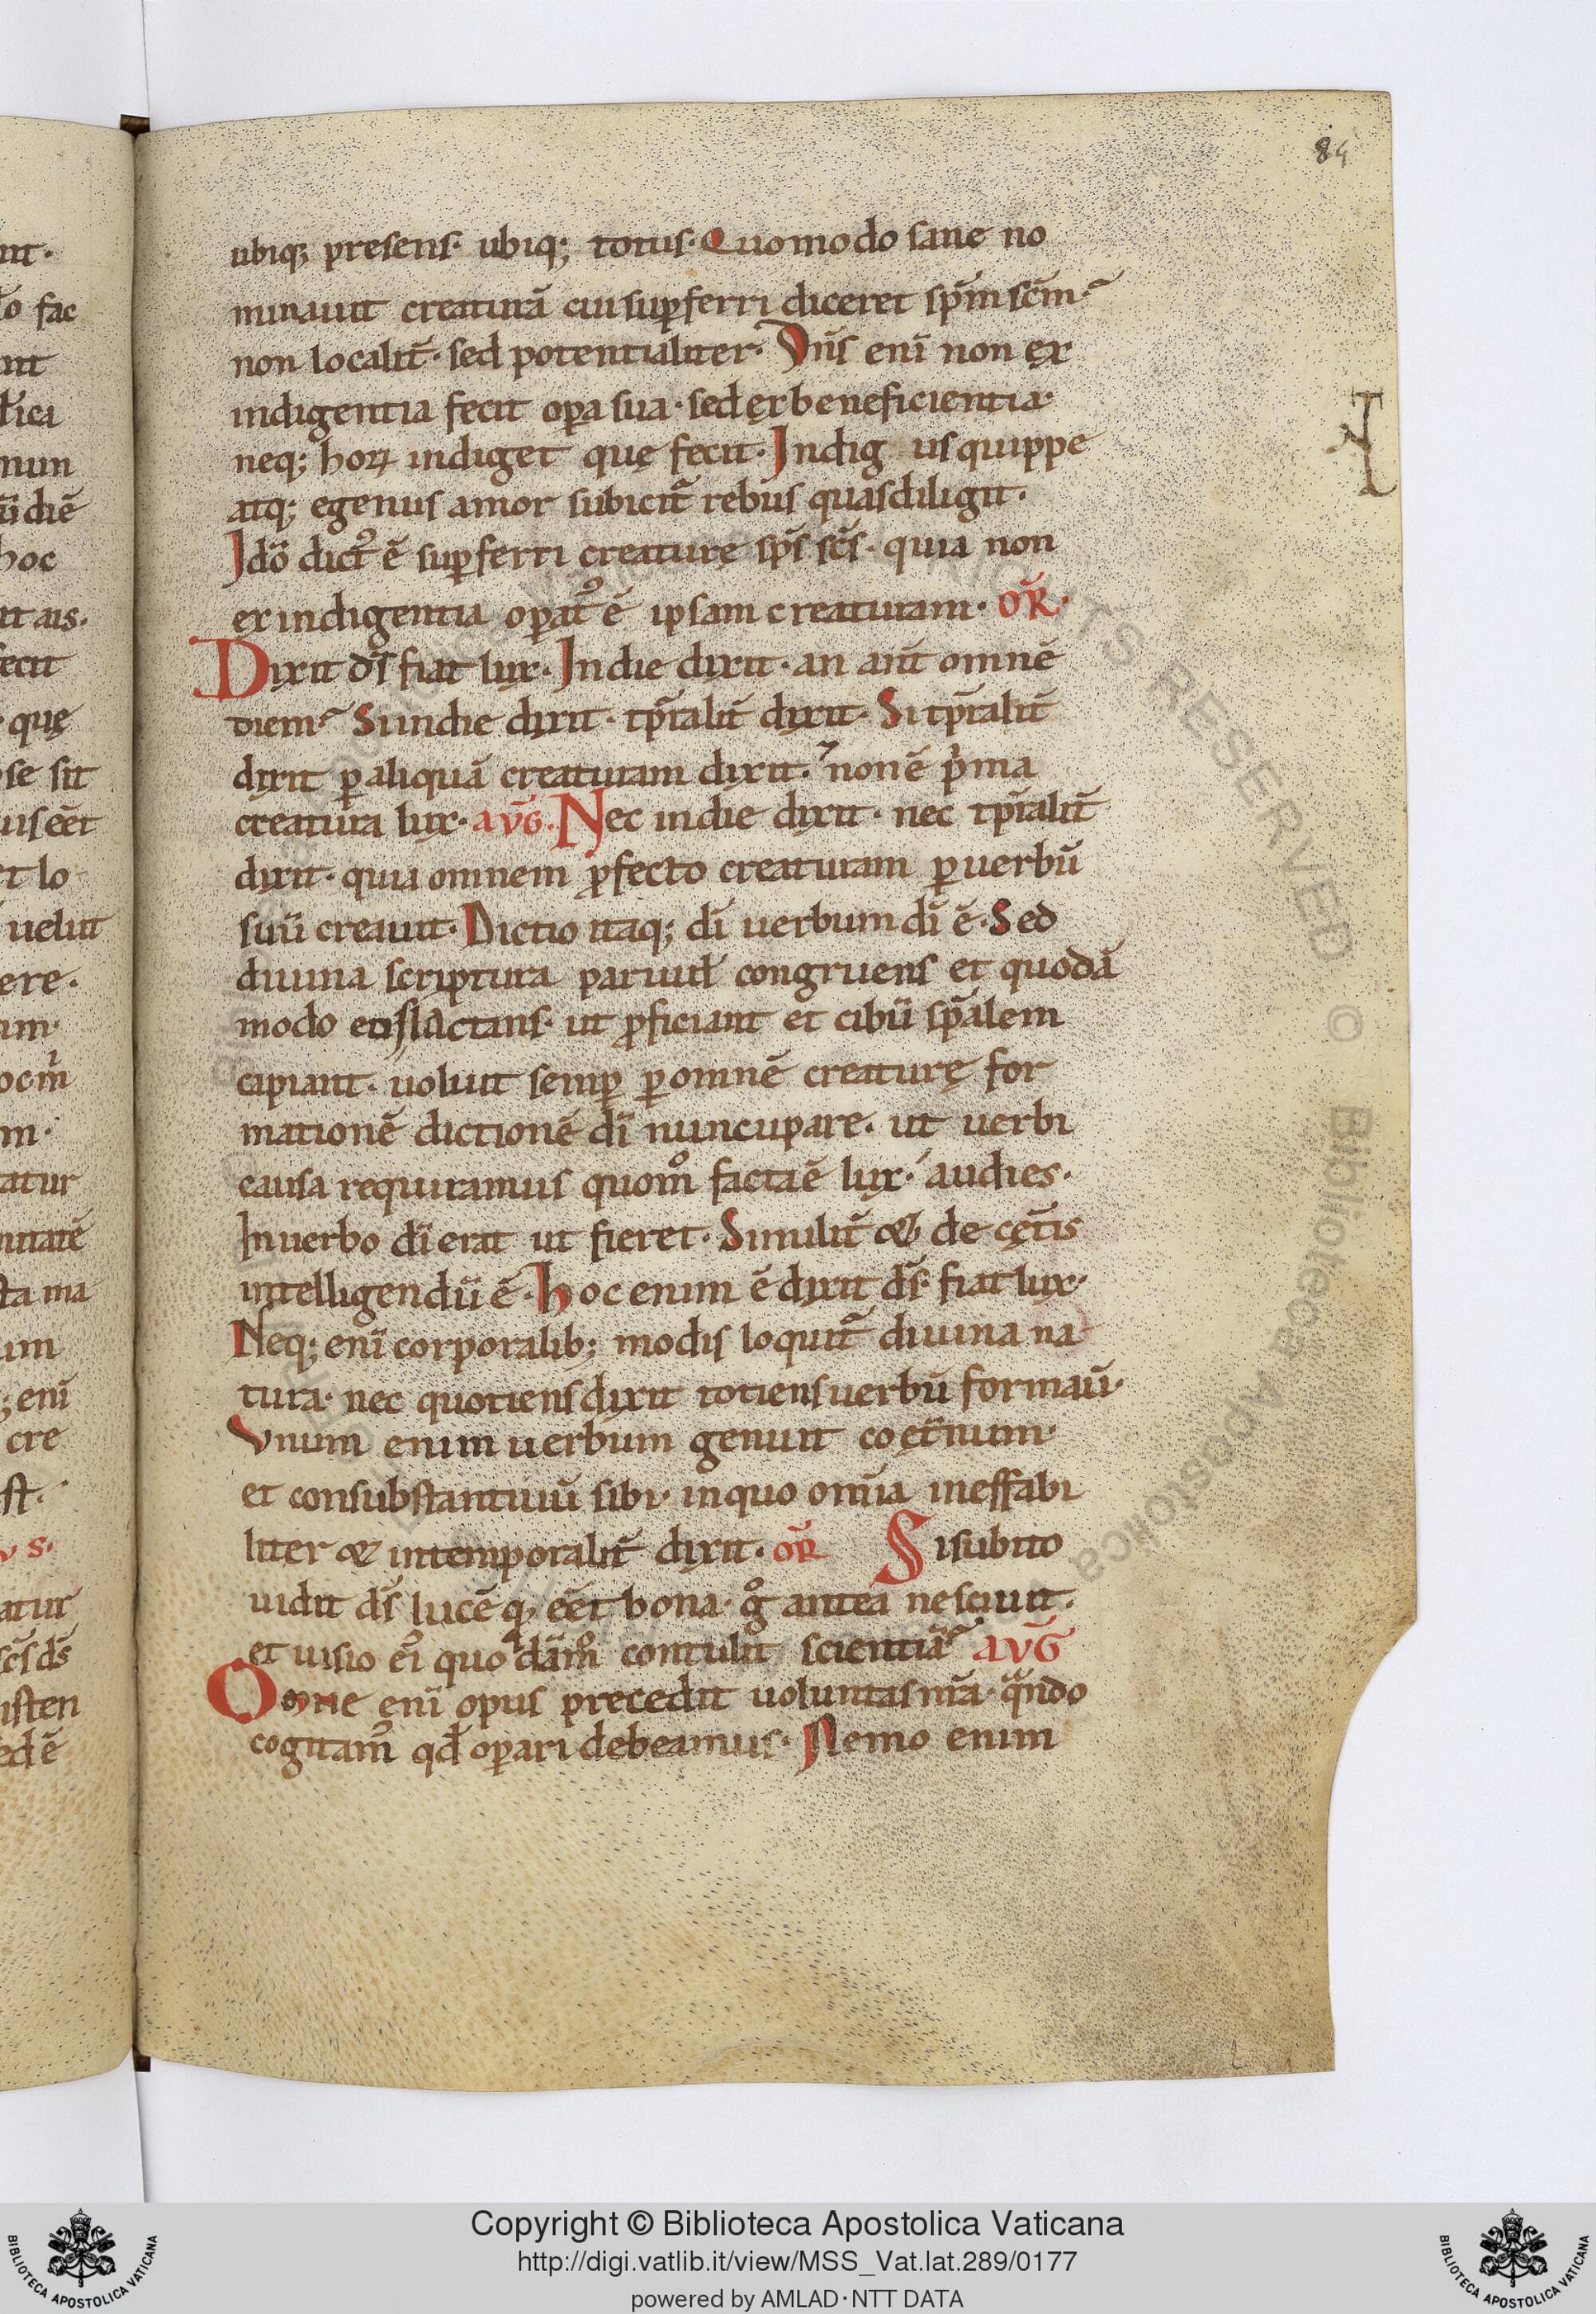 84
ubiq; presens· ubiq; totus· Quomodo sane no
minauit creaturā cui suꝑferri diceret sp̄m sc̄m·
non localit̄· sed potentialiter· Dn̄s enī non ex
indigentia fecit oꝑa sua· sed ex beneficientia·
neq; hoꝝ indiget quę fecit· Indig us quippe
atq; egenus amor subicit̄ rebus quas diligit·
Idō dict᷒ ē suꝑferri creaturę sp̄s sc̄s· quia non
ex indigentia oꝑat᷒ ē ipsam creaturam· OR̄·
Dixit ds̄ fiat lux· In die dixit· an ant̄ omnē
diem· Si in die dixit· tp̄ralit̄ dixit· Si tp̄ralit̄
dixit ꝑ aliquā creaturam dixit· ⁊ non ē p̓ma
creatura lux· AVḠ· Nec in die dixit· nec tp̄ralit̄
dixit· quia omnem ꝓfecto creaturam ꝑ uerbū
suū creauit· Dictio itaq; dī uerbum dī ē· Sed
diuina scriptura paruul̄ congruens et quodā
modo eis lactans· ut ꝓficiant et cibū sp̄alem
capiant· uoluit semꝑ ꝑ omnē creaturę for
mationē dictionē dī nuncupare· ut uerbi
causa requiramus quom̊ facta ē lux· audies·
In uerbo dī erat ut fieret· Similit̄ & de cęt̄is
intelligendū ē· Hoc enim ē dixit ds̄· fiat lux·
Neq; enī corporalib; modis loquit̄ diuina na
tura· nec quotiens dixit totiens uerbū formau̅·
Vnum enim uerbum genuit coęt̄num·
et consubstantiuū sibi· in quo om̄ia ineffabi
liter & intemporalit̄ dixit· OR̄ Si subito
uidit ds̄ lucē q, eēt bona· g̊ antea nesciuit·
et uisio ei᷒ quodām̊ contulit scientiā· AVḠ
Omne enī opus precedit uoluntas nr̄a· qᵃndo
cogitam᷒ qd̄ oꝑari debeamus· Nemo enim
Copyright © Biblioteca Apostolica Vaticana
http://digi.vatlib.it/view/MSS_Vat.lat.289/0177
powered by AMLAD·NTT DATA